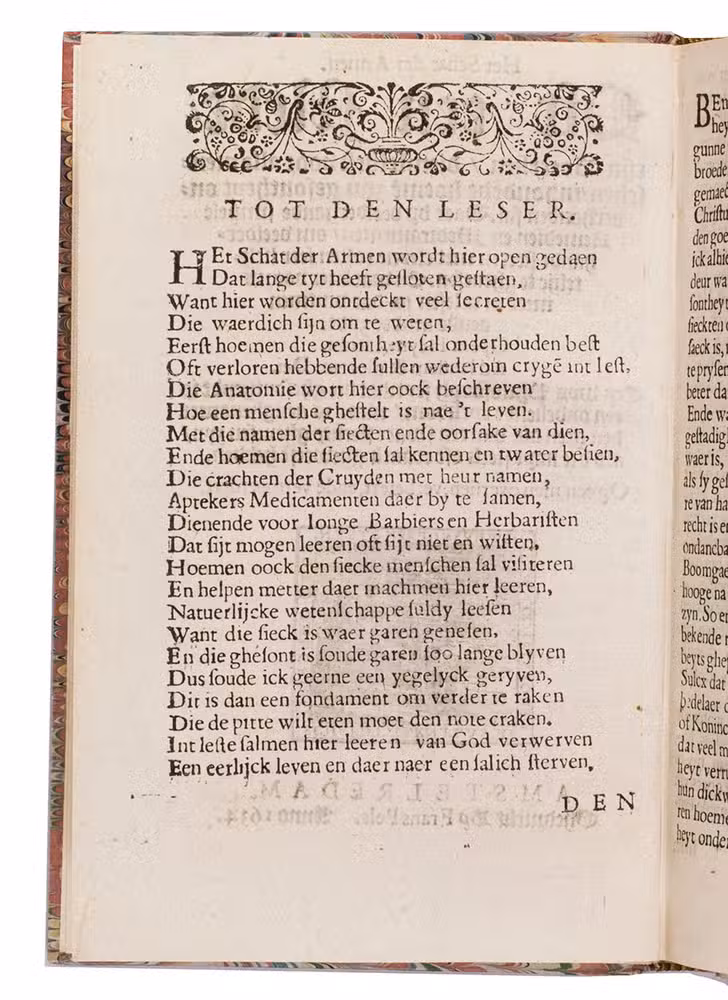 TOT DEN LESER.
HEt Schat der Armen wordt hier open gedaen
Dat lange tyt heeft gesloten gestaen,
Want hier worden ontdeckt veel secreten
Die waerdich sijn om te weten,
Eerst hoemen die gesontheyt sal onderhouden best
Oft verloren hebbende sullen wederom crygē int lest,
Die Anatomie wort hier oock beschreven
Hoe een mensche ghestelt is nae 't leven.
Met die namen der siecten ende oorsake van dien,
Ende hoemen die siecten sal kennen en twater besien,
Die crachten der Cruyden met heur namen,
Aptekers Medicamenten daer by te samen,
Dienende voor Ionge Barbiers en Herbaristen
Dat sijt mogen leeren oft sijt niet en wisten.
Hoemen oock den siecke menschen sal visiteren
En helpen metter daet machmen hier leeren,
Natuerlijcke wetenschappe suldy leesen
Want die sieck is waer garen genesen,
En die ghesont is soude garen soo lange blyven
Dus soude ick geerne een yegelyck geryven,
Dit is dan een fondament om verder te raken
Die de pitte wilt eten moet den note craken.
Int leste salmen hier leeren van God verwerven
Een eerlijck leven en daer naer een salich sterven.
DEN
BEn
hey
gunne
broede
gemaed
Christu
den goe
ick alhie
deur wa
sonthey
sieckten
saeck is,
te pryser
beter da
Ende wa
gestadig
waer is,
als sy ges
re van ha
recht is e
ondancba
Boomgae
hooge na
zyn. So e
bekende
beyts ghe
Sulcx dat
bedelaer
of Koninc
dat veel m
heyt verm
hun dickw
ren hoeme
heyt onde